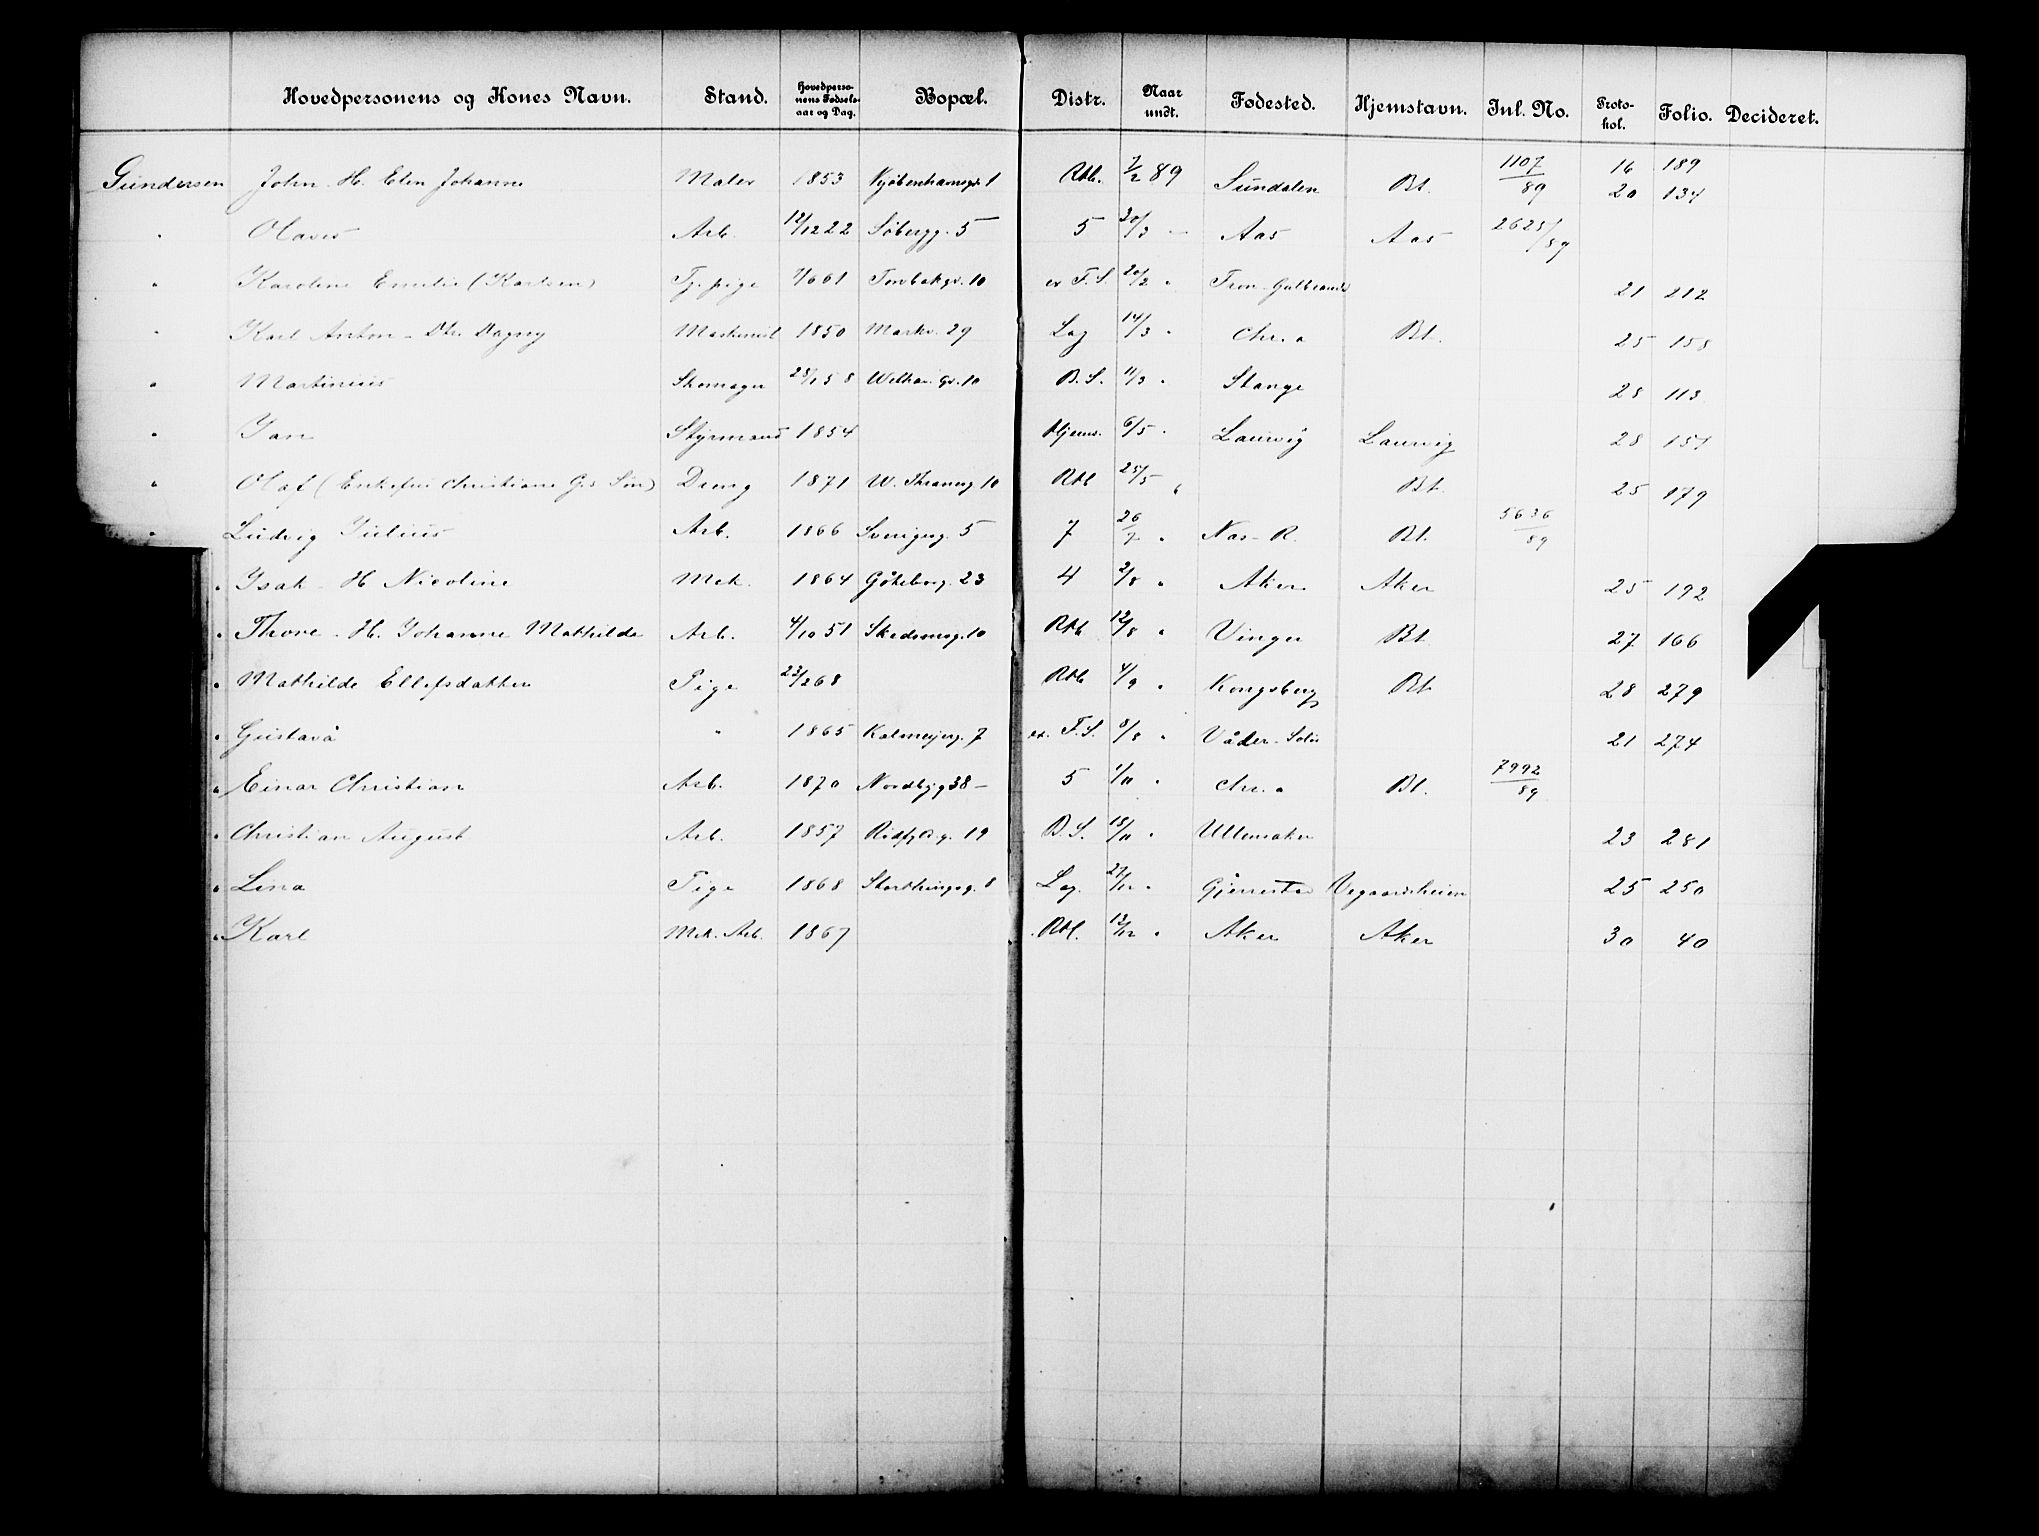 Hovedpersonens og Kones Navn. Stand. Hovedperso-nens Fødsels-aar og Dag. Bopæl. Distr. Naar undt. Fødested. Hjemstavn. Inl. No. Proto-kol. Folio. Decideret.
Gundersen John - H. Elen Johanne Maler 1853 Kjøbenhavnsg. 1 Rtb. 7/2 89 Sundalen Bt. 1107/89 16 189
20 134
" Olaves Arb. 12/12 22 Søbergg. 5 5 20/3 — Aas Aas 2625/89
" Karoline Emelie (Karlsen) Tj. pige 7/6 61 Torbakgv. 10 ex F.S. 20/2 " Tron - Gulbrands 21 212
" Karl Anton - Dtr. Dagny Maskinist 1850 Markv. 29 Lag 14/3 " Chr.a Bt. 25 158
" Martinius Skomager 28/1 58 Welhav. Gv. 10 B.S. 11/3 " Stange 28 113
" Jan Styrmand 1854 Hjems. 6/5 " Laurvig Laurvig 28 151
" Olaf (Enkefru Christiane G.s Søn) Dreng 1871 W. Thraneg 10 Rtb 25/5 " Bt. 25 179
" Ludvig Julius Arb. 1866 Sverigesg. 5 7 26/7 " Næs - R. Bt. 5636/89
" Isak - H Nicoline Mek. 1864 Gøteborg. 23 4 2/8 " Aker Aker 25 192
" Thore - H. Johanne Mathilde Arb. 4/10 51 Skedsmog. 10 Rtb 12/8 " Vinger Bt. 27 166
" Mathilde Ellefsdatter Pige 23/2 68 Rtb 4/9 " Kongsberg Bt 28 279
" Gustava " 1865 Kalmeyerg. 7 ex. F.S. 8/8 " Våler - Solør 21 274
" Einar Christian Arb. 1870 Nordbyg 38 — 5 1/11 " Chr.a Bt. 7992/89
" Christian August Arb. 1857 19 B.S. 18/11 " Ullensaker 23 281
" Lina Pige 1868 Storthingsg. 8 Lag. 27/12 " Gjerrestad Vegaardsheien 25 250
" Karl Mek. Arb. 1867 Rtb. 13/12 " Aker Aker 30 40